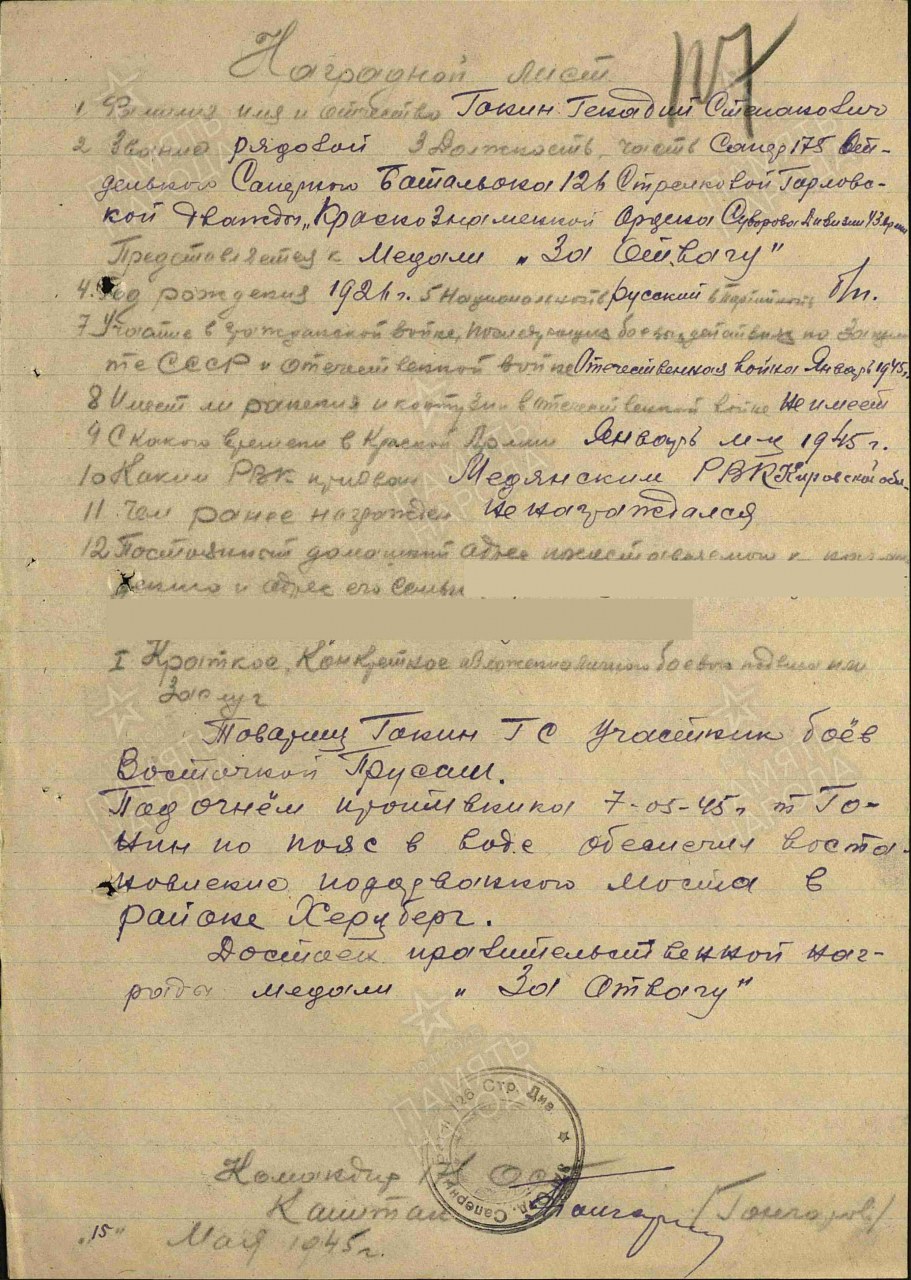 Наградной лист
1 Фамилия имя и отчество Гонин Генадий Степанович
2 Звание рядовой 3 Должность, часть Сапер 175 Отд-
дельного Саперного Батальона 126 Стрелковой Горловс-
кой дважды „Краснознаменной Ордена Суворова Дивизии 43 Армии
Представляется к Медали „За Отвагу"
4. Год рождения 1926 г. 5 Национальность русский 6 Партийность б/п.
7 Участие в гражданской войне, последующих боевых действиях по защи
те СССР и отечественной войне Отечественная война Январь 1945 г.
8 Имеет ли ранения и контузии в отечественной войне не имеет
9 С какого времени в Красной Армии Январь м-ц 1945 г.
10 Каким РВК призван Медянским РВК Кировской обл.
11 Чем ранее награжден не награждался
12 Постоянный домашний адрес представляемого к
и адрес его семьи
I Краткое, конкретное изложение личного боевого подвига или
заслуг
Товарищ Гонин Г С участник боёв
Восточной Прусаии.
Под огнём противника 7-05-45 г т Го-
нин по пояс в воде обеспечил воста-
новление подорванного моста в
районе Херцберг.
Достоен правительственной наг-
рады медали „За Отвагу"
126 Стр. Див.
Отд. Саперн
Командир
Капитан (Гончаров)
„15" Мая 1945 г.
ПАМЯТЬ НАРОДА